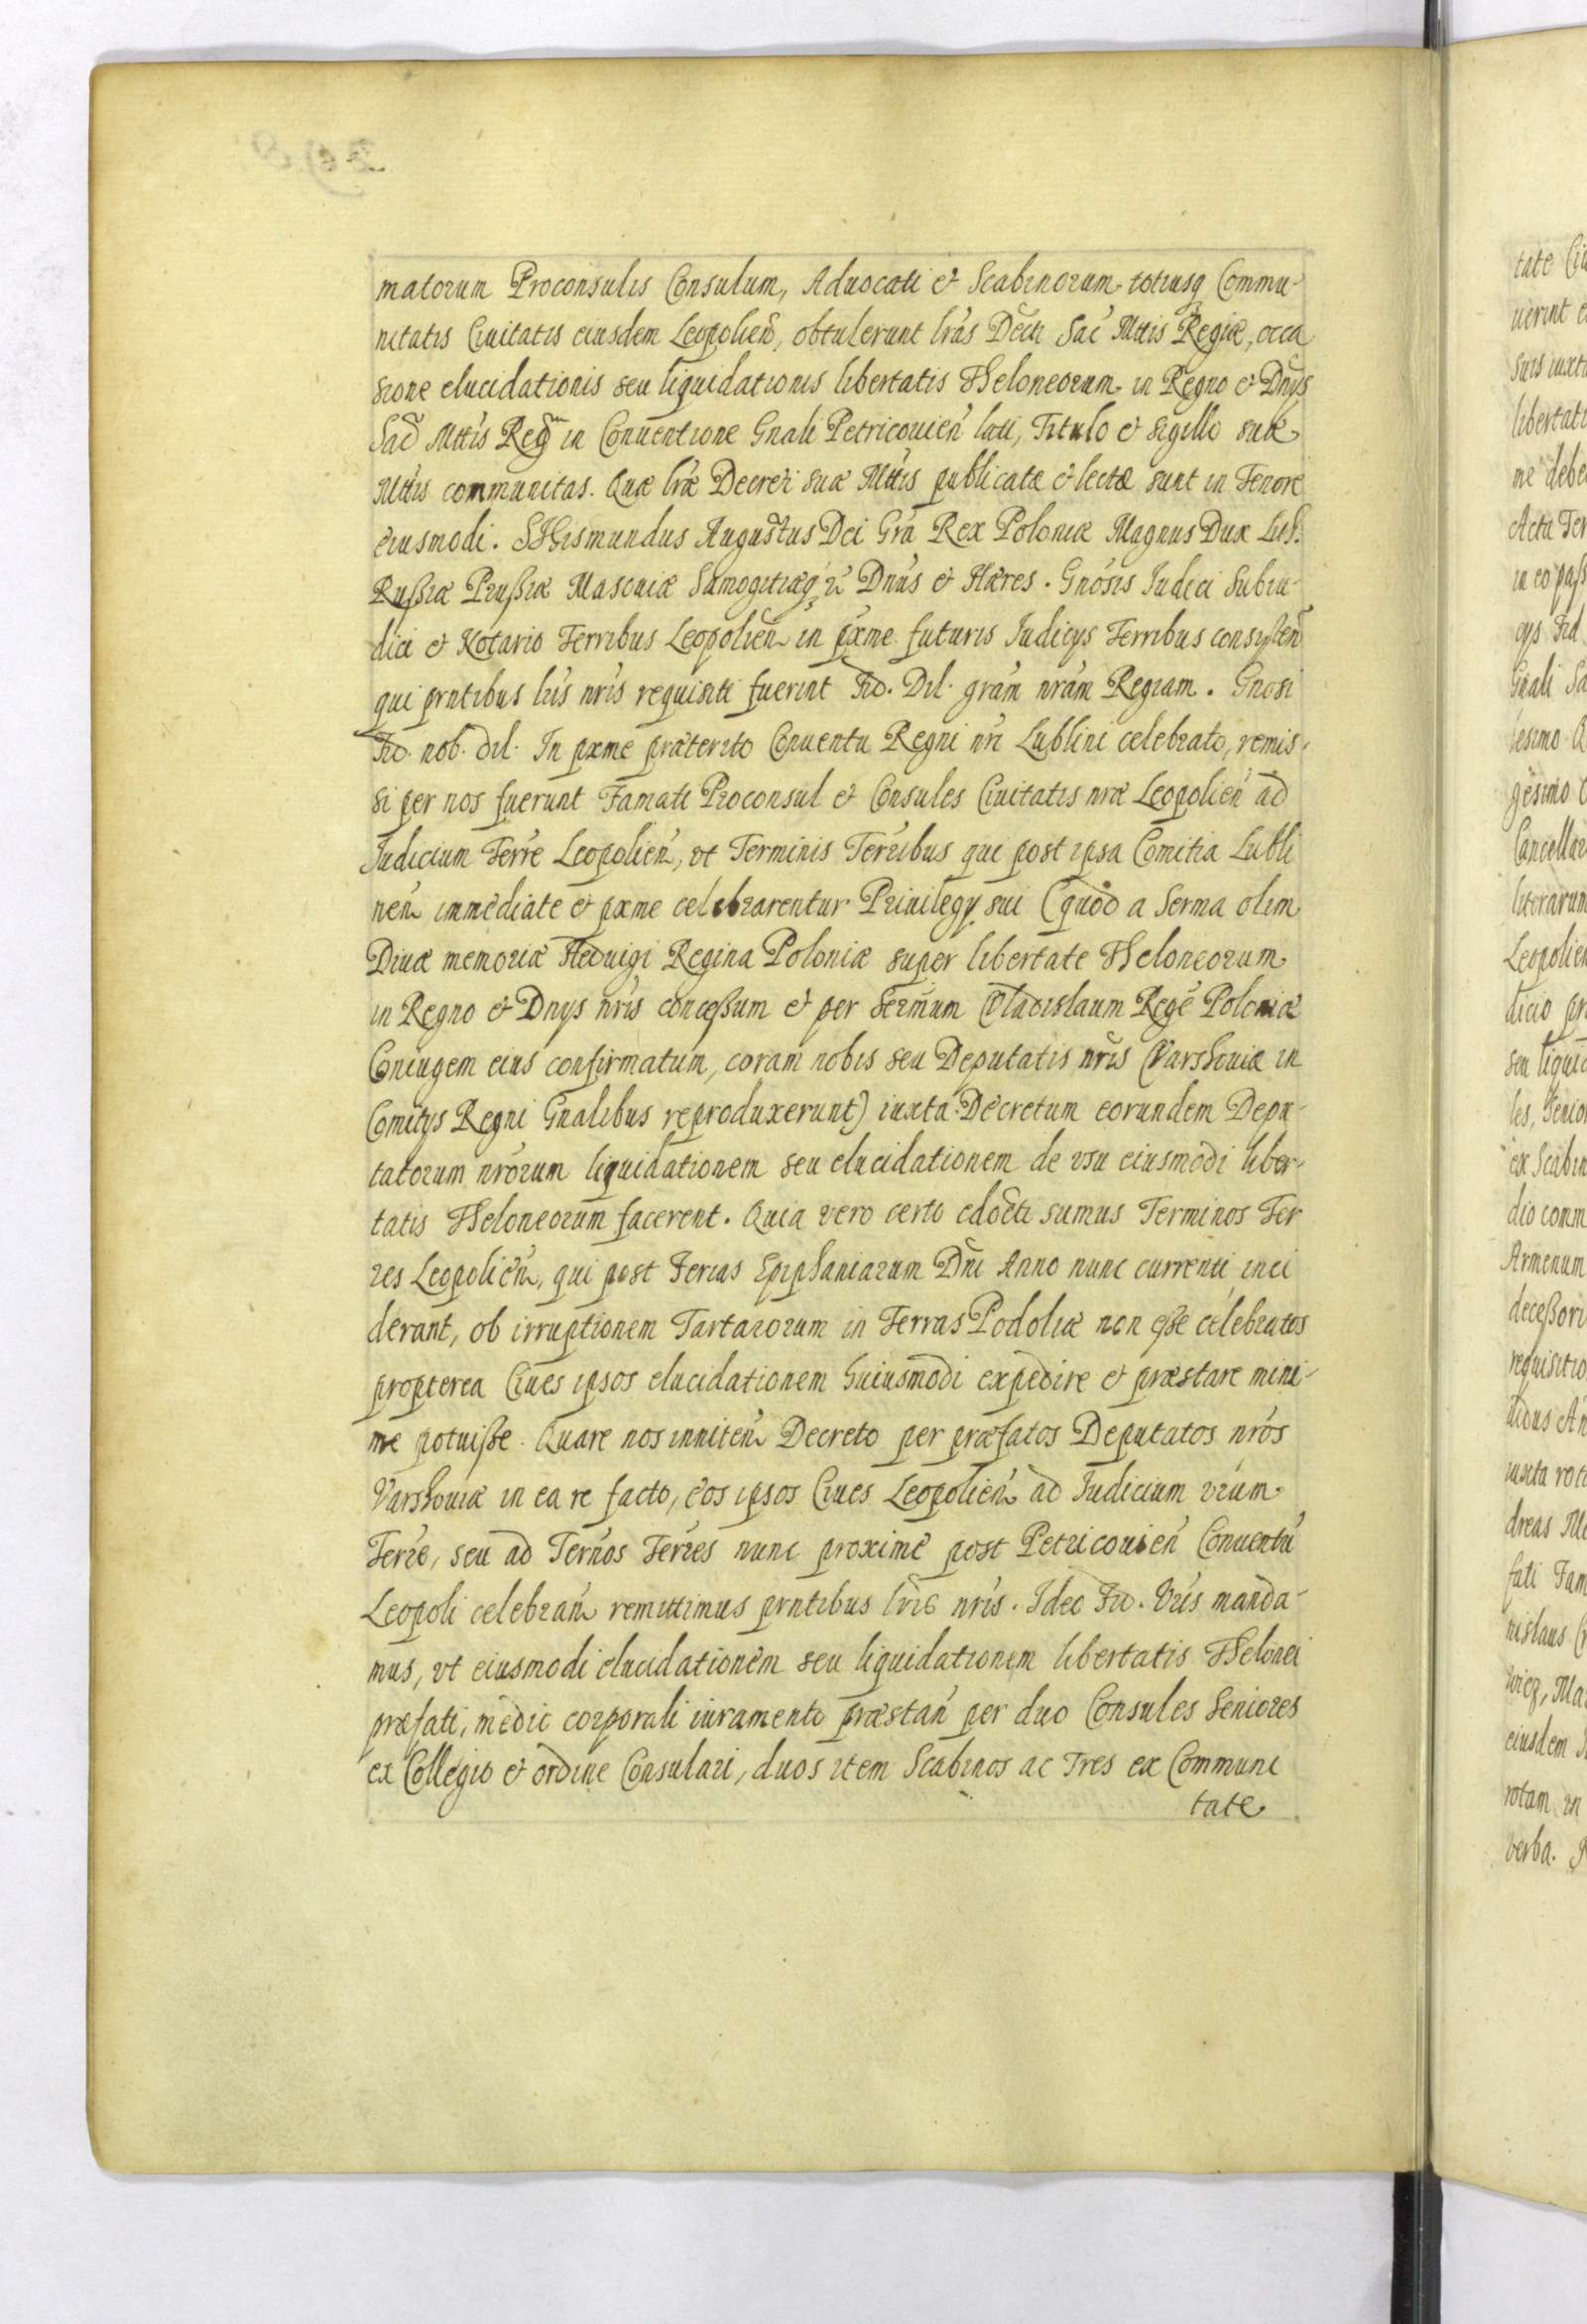 matorum Proconsulis Consulum, Aduocati et Scabinorum totiusq Commu-
nitatis Ciuitatis eiusdem Leopolien, obtulerunt lras Decti Sac Mttis Regiæ, occa
sione elucidationis seu liquidationis libertatis Theloneorum in Regno et Dnijs
Sac Mttis Reg in Conuentione Gnali Petricouien lati, Titulo et sigillo suæ
Mttis communitas. Quæ lræ Decreti suæ Mttis publicatæ et lectæ sunt in Tenore
eiusmodi. SIGismundus Augustus Dei Gra Rex Poloniæ Magnus Dux Lith.
Rußiæ Prußiæ Masouiæ Samogitiæq Dnus et Hæres. Gnosis Iudici Subiu-
dici et Notario Terribus Leopolien in pxme futuris Iudicijs Terribus consisten
qui prntibus lris nris requisiti fuerint Fid. Dil. gram nram Regiam. Gnosi
Fid. nob. dil. In pxme præterito Conuentu Regni nri Lublini celebrato, remis-
si per nos fuerunt Famati Proconsul et Consules Ciuitatis nræ Leopolien ad
Iudicium Terre Leopolien, vt Terminis Terribus qui post ipsa Comitia Lubli
nen immediate et pxme celebrarentur Priuilegy sui (quod a Serma olim
Diuæ memoriæ Heduigi Regina Poloniæ super libertate Theloneorum
in Regno et Dnijs nris conceßum et per Sermum Vladislaum Rege Poloniæ
Coniugem eius confirmatum, coram nobis seu Deputatis nris Varshouiæ in
Comitijs Regni Gnalibus reproduxerunt) iuxta Decretum eorundem Depu-
tatorum nrorum liquidationem seu elucidationem de vsu eiusmodi liber-
tatis Theloneorum facerent. Quia vero certo edocti sumus Terminos Ter
res Leopolien, qui post Ferias Epiphaniarum Dni Anno nunc currenti inci
derant, ob irruptionem Tartarorum in Terras Podoliæ non eße celebratos
propterea Ciues ipsos elucidationem huiusmodi expedire et præstare mini-
me potuiße. Quare nos inniten Decreto per præfatos Deputatos nros
Varshouiæ in ea re facto, eos ipsos Ciues Leopolien ad Iudicium vrum
Terre, seu ad Ternos Terres nunc proxime post Petricouien Conuentu
Leopoli celebran remittimus prntibus lris nris. Ideo Fid. Vris manda-
mus, vt eiusmodi elucidationem seu liquidationem libertatis Thelonei
præfati, medio corporali iuramento præstan per duo Consules Seniores
ex Collegio et ordine Consulari, duos item Scabinos ac Tres ex Communi
tate